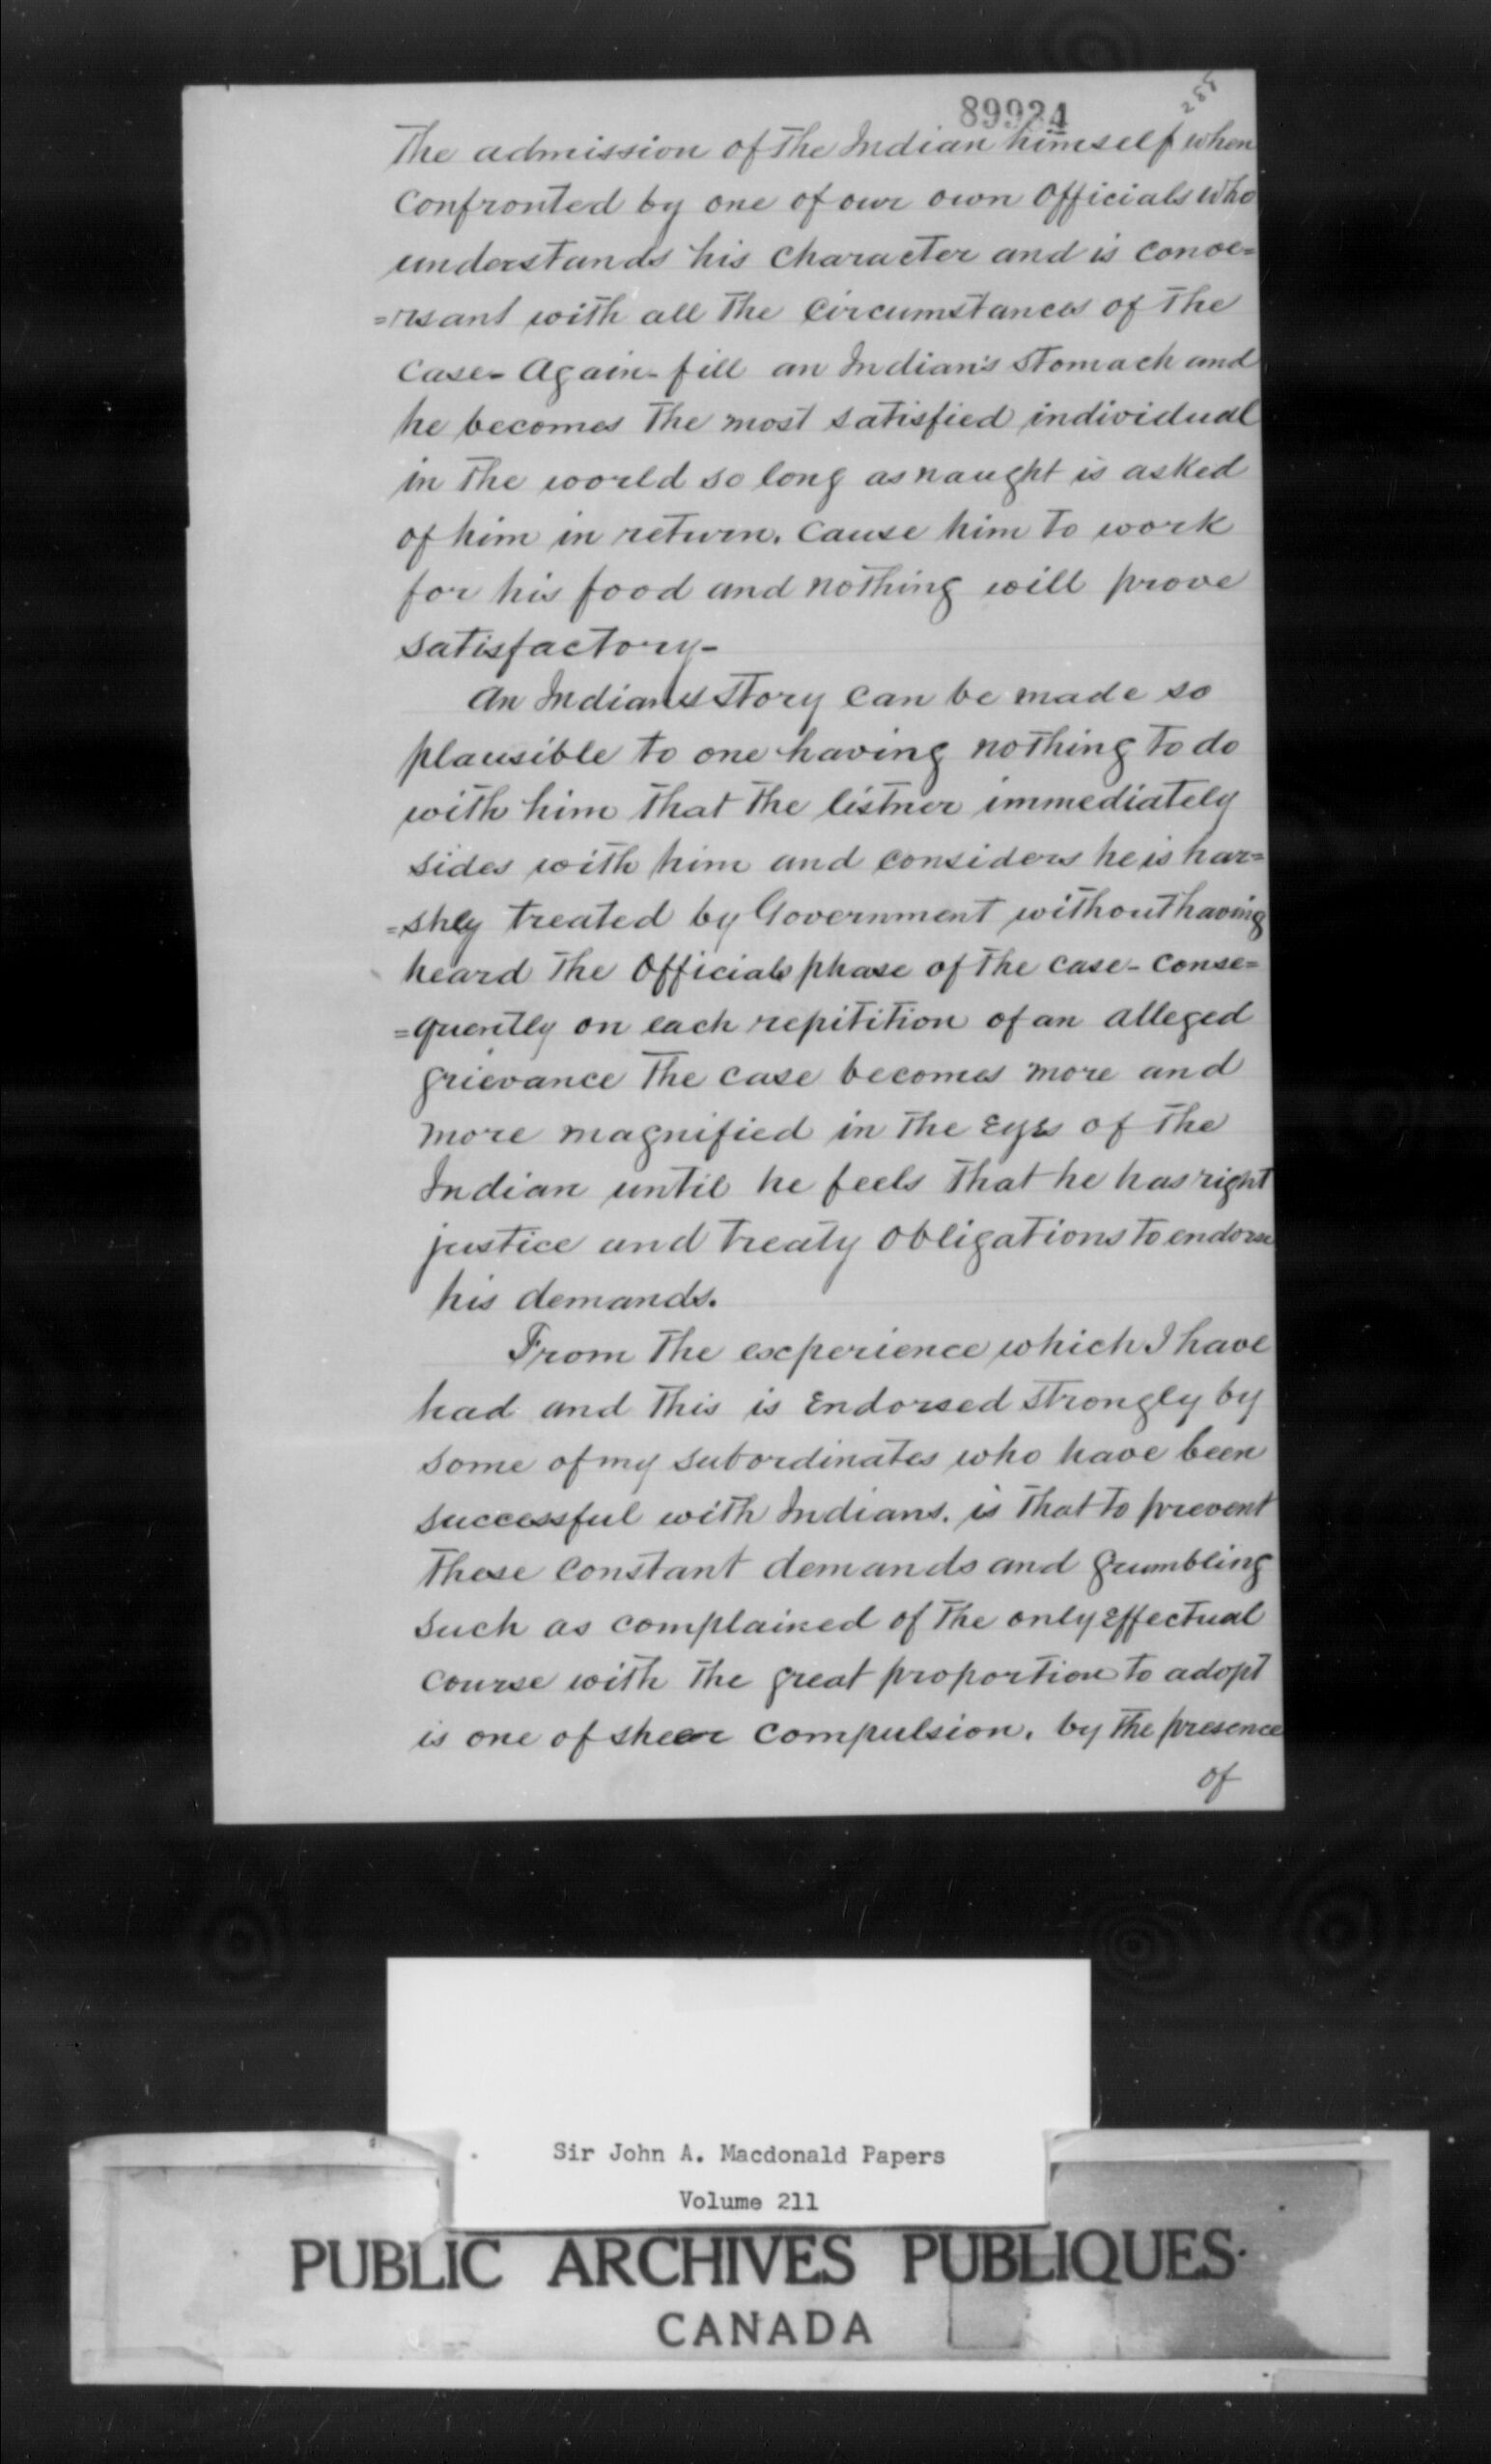 89924
288
The admission of the Indian himself when
confronted by one of our own Officials who
understands his character and is conve=
=rsant with all the circumstances of the
case - Again - fill an Indian's stomach and
he becomes the most satisfied individual
in the world so long as naught is asked
of him in return. Cause him to work
for his food and nothing will prove
satisfactory -
An Indian's story can be made so
plausible to one having nothing to do
with him that the listner immediately
sides with him and considers he is har=
=shly treated by Government without having
heard the Officials phase of the case - Conse=
=quently on each repitition of an alleged
grievance the case becomes more and
more magnified in the eyes of the
Indian until he feels that he has right
justice and treaty obligations to endorse
his demands.
From the experience which I have
had and this is endorsed strongly by
some of my subordinates who have been
successful with Indians. is that to prevent
these constant demands and grumbling
such as complained of the only effectual
course with the great proportion to adopt
is one of sheer compulsion, by the presence
of
Sir John A. Macdonald Papers
Volume 211
PUBLIC ARCHIVES PUBLIQUES
CANADA